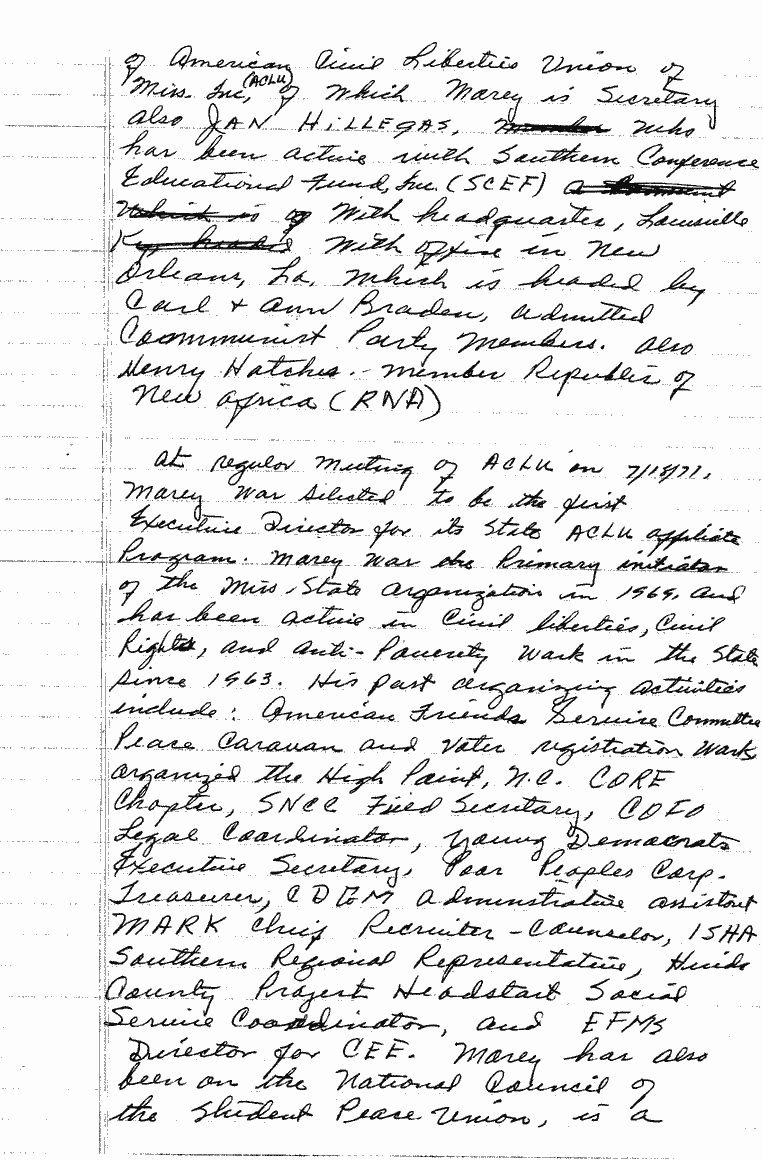 of American Civil Liberties Union of
Miss. Inc, (ACLU) of which Marey is Secretary
also JAN HiLLEGAS, who
has been active with Southern Conference
Educational Fund, Inc. (SCEF) a Communist
which is of With headquarter, Louisville
Ky, With office in New
Orleans, La. which is headed by
Carl + Ann Braden, admitted
Communist Party Members. also
Henry Hatches - Member Republic of
New Africa (RNA)
at regular Meeting of ACLU on 7/15/71,
Marey was selected to be the first
Executive Director for its State ACLU affiliate
Program. Marey was the Primary initiator
of the Miss. State organization in 1969, and
has been active in Civil liberties, Civil
Rights, and anti-Poverty Work in the State
since 1963. His past organizing activities
include: American Friends Service Committee
Peace Caravan and Voter registration Work,
organized the High Point, N.C. CORE
Chapter, SNCC Field Secretary, COFO
Legal Coordinator, Young Democrats
Executive Secretary, Poor Peoples Corp.
Treasurer, CDGM administrative assistant
MARK chief Recruiter - Counselor, ISHA
Southern Regional Representative, Hinds
County Project Headstart Social
Service Coordinator, and EFMS
Director for CEE. Marey has also
been on the National Council of
the Student Peace Union, is a